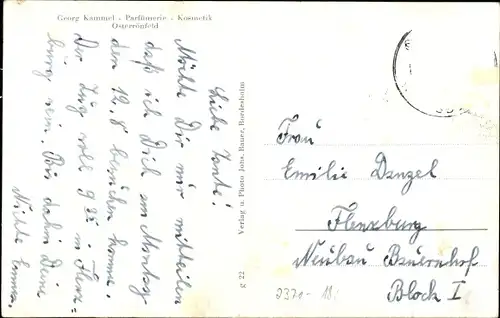 Georg Kummel - Parfümerie - Kosmetik
Osterrönfeld
Liebe Tante!
Möchte Dir nur mitteilen
daß ich Dich am Montag
den 12.8 besuchen komme.
Der Zug soll 9 in Flens=
burg sein. Bis dahin Deine
Nichte Emma.
Verlag u. Photo Johs. Bauer, Bordesholm
g 22
Frau
Emilie Danzel
Flensburg
Neubau Bauernhof
Block I